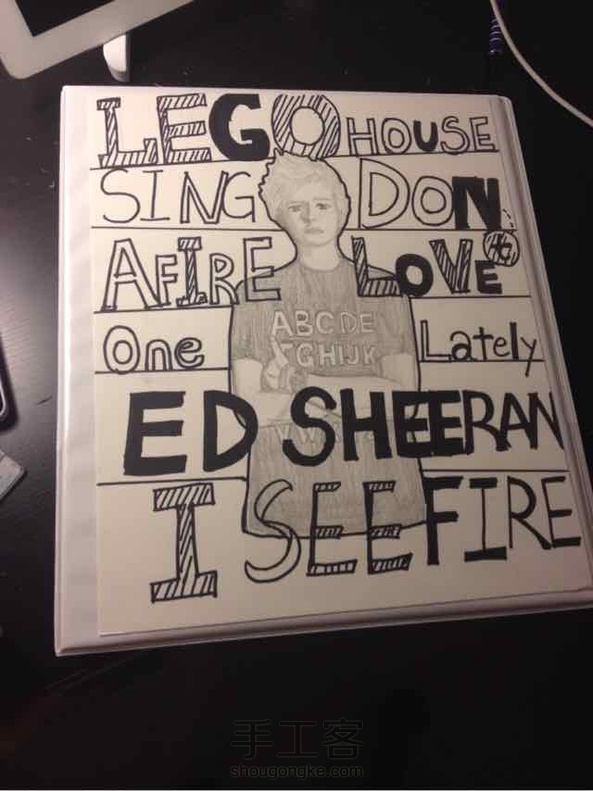 LEGO HOUSE
SING DON't
AFIRE LOVE
One Lately
ABCDE
FGHIJK
ED SHEERAN
I SEE FIRE
手工客
shougongke.com